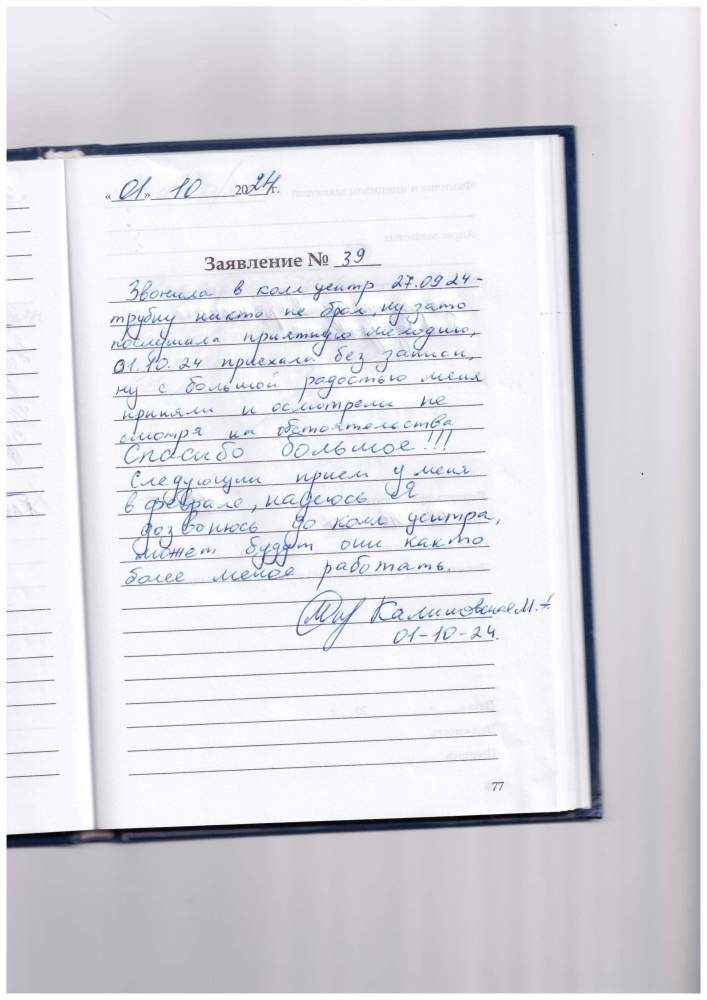 « 01 » 10 2024 г.
Заявление № 39
Звонила в колл центр 27.09.24 -
трубку никто не брал, ну зато
послушала приятную мелодию,
01.10.24 приехала без записи,
ну с большой радостью меня
приняли и осмотрели не
смотря на обстоятельства
Спасибо большое!!!
Следующий прием у меня
в феврале, надеюсь Я
дозвонюсь до колл центра,
может будут они как то
более менее работать.
Калиновская М. А.
01-10-24.
77